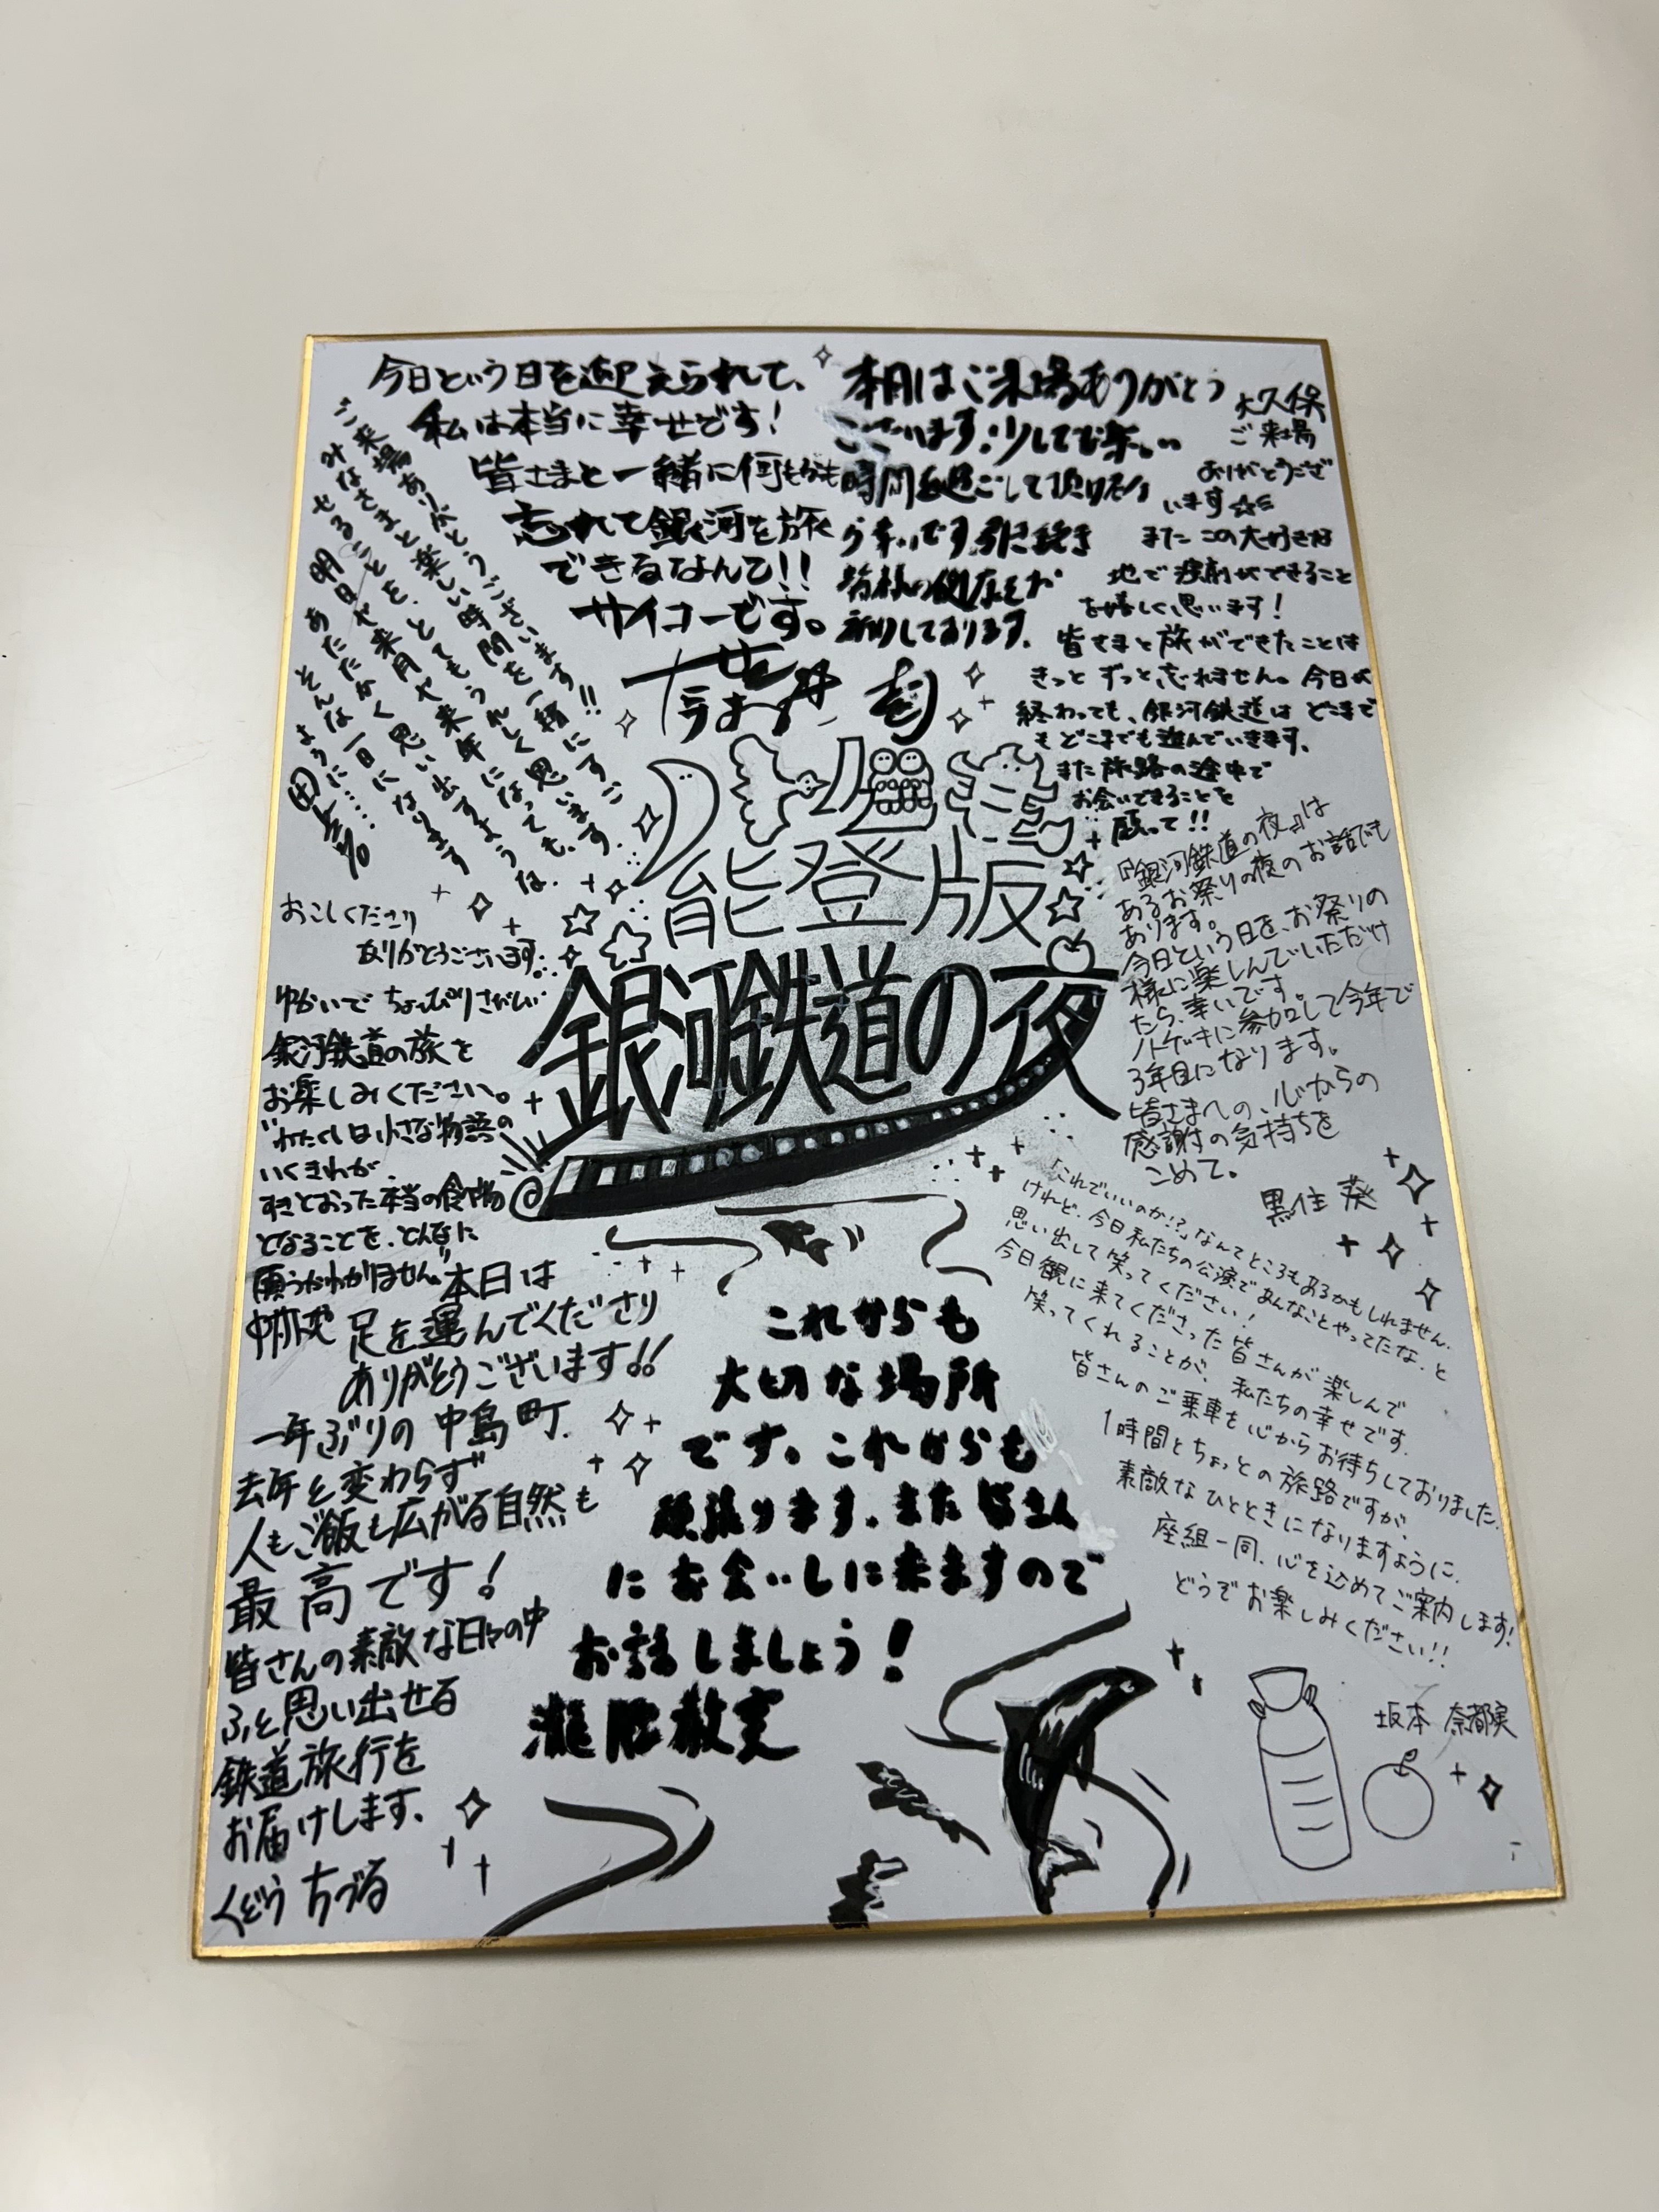 今日という日を迎えられて、
私は本当に幸せです!
皆さまと一緒に何もかも
忘れて銀河を旅
できるなんて!!
サイコーです。
本日はご来場ありがとう
ございます!少しでも楽しい
時間を過ごして頂けた
ら幸いです。引き続き
皆様の健康をお
祈りしております。
大久保
ご来場
ありがとうござ
います☆
また この大好きな
地で演劇ができること
を嬉しく思います!
皆さまと旅ができたことは
きっと ずっと忘れません。今日が
終わっても、銀河鉄道は どこまで
もどこまでも進んでいきます。
また旅路の途中で
お会いできることを
願って!!
ご来場ありがとうございます!!
みなさまと楽しい時間を一緒にすご
せることを、とてもうれしく思います。
明日や来月や来年になっても、
あたたかく思い出すような、
そんな一日になります
ように……
能登版
銀河鉄道の夜
おこしくださり
ありがとうございます。
ゆかいで ちょっぴりさびしい
銀河鉄道の旅を
お楽しみください。
"わたくしは小さな物語の
いくきれが、
すきとおった本当の食べ物
となることを、どんなに
願うかわかりません"
『銀河鉄道の夜』は
あるお祭りの夜のお話でも
あります。
今日という日を、お祭りの
様に楽しんでいただけ
たら、幸いです。
ノトゲキに参加して今年で
3年目になります。
皆さまへの、心からの
感謝の気持ちを
こめて。
黒住 葵
本日は
足を運んでくださり
ありがとうございます!!
一年ぶりの 中島町。
去年と変わらず
人もご飯も広がる自然も
最高です!
皆さんの素敵な日々の中
ふと思い出せる
鉄道旅行を
お届けします。
くどう ちづる
これからも
大切な場所
です。これからも
頑張ります。また皆さん
にお会いしに来ますので
お話しましょう!
「これでいいのか!?」なんてところもあるかもしれません。
けれど、今日私たちの公演であんなことやってたな、と
思い出して笑ってください!
今日観に来てくださった皆さんが楽しんで
笑ってくれることが、私たちの幸せです。
皆さんのご乗車を心からお待ちしておりました。
1時間とちょっとの旅路ですが、
素敵なひとときになりますように。
座組一同、心を込めてご案内します!
どうぞお楽しみください!!
坂本 奈都実